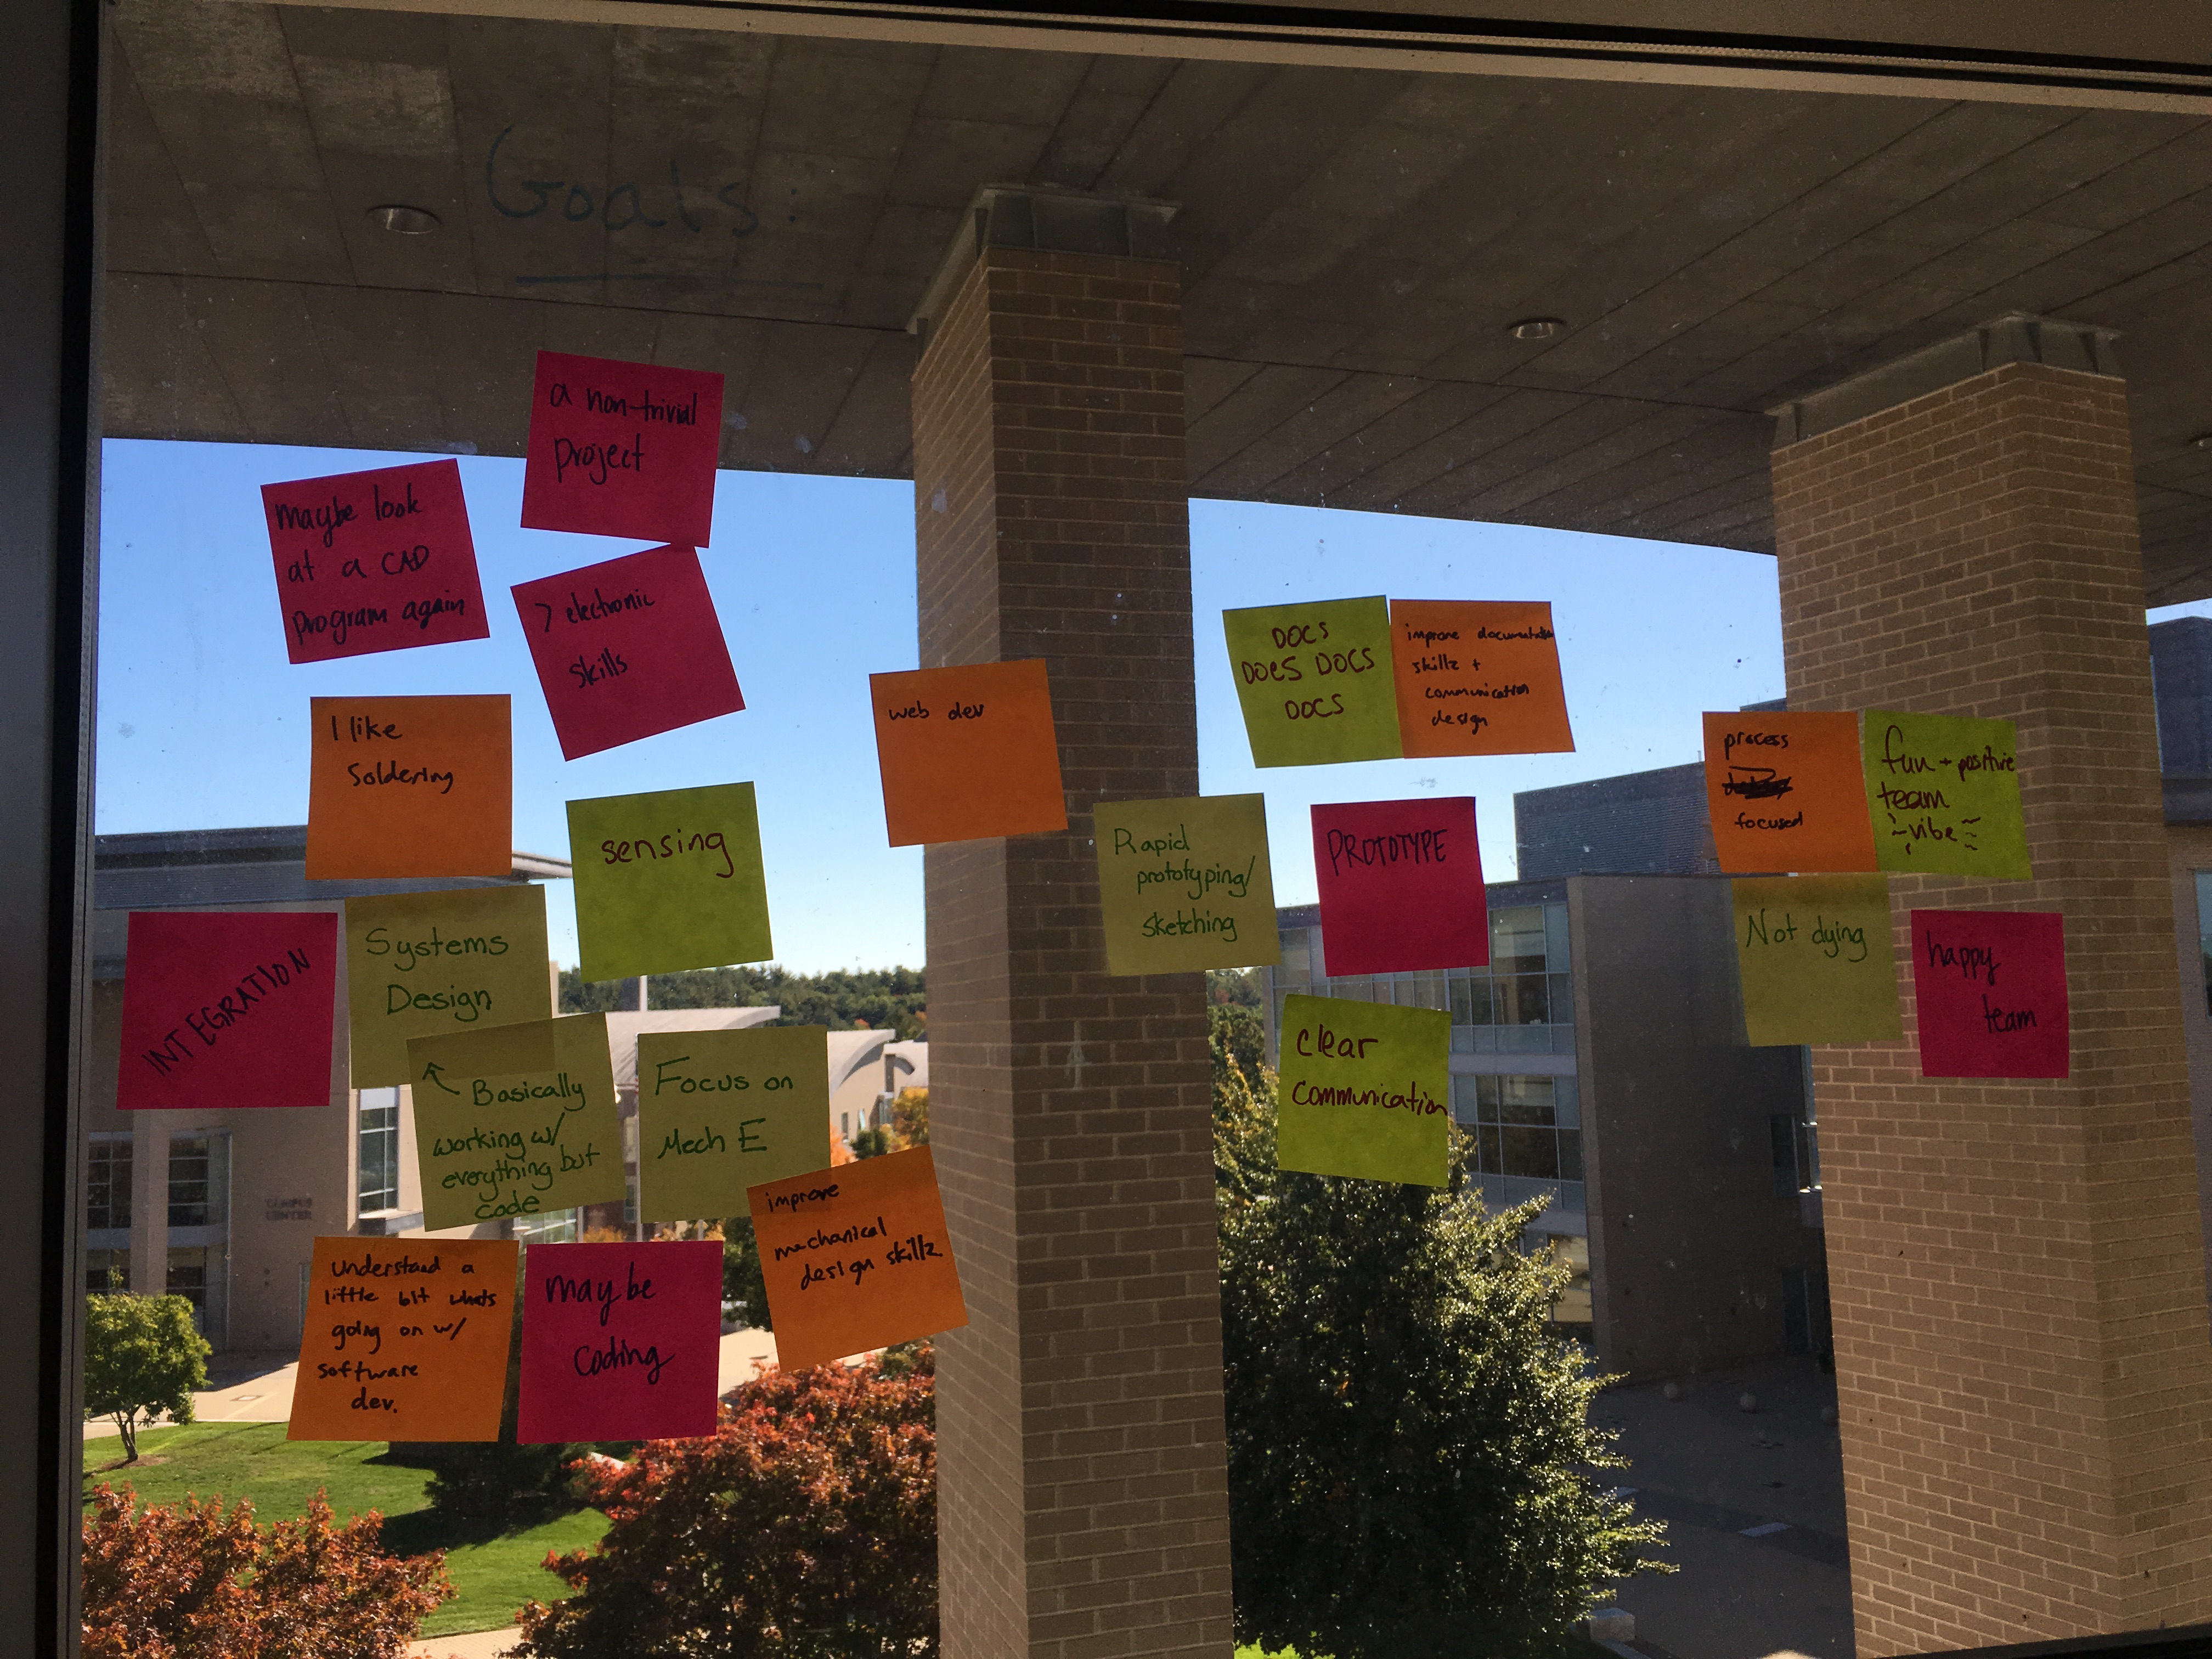 Goals:
a non-trivial
project
maybe look
at a CAD
program again
> electronic
skills
I like
Soldering
sensing
web dev
INTEGRATION
Systems
Design
↖ Basically
working w/
everything but
code
Focus on
Mech E
improve
mechanical
design skillz
understand a
little bit whats
going on w/
software
dev.
maybe
coding
DOCS
DOCS DOCS
DOCS
improve documentation
skillz +
communication
design
Rapid
prototyping/
sketching
PROTOTYPE
clear
communication
process
focused
fun + positive
team
vibe
Not dying
happy
team
CAMPUS
CENTER